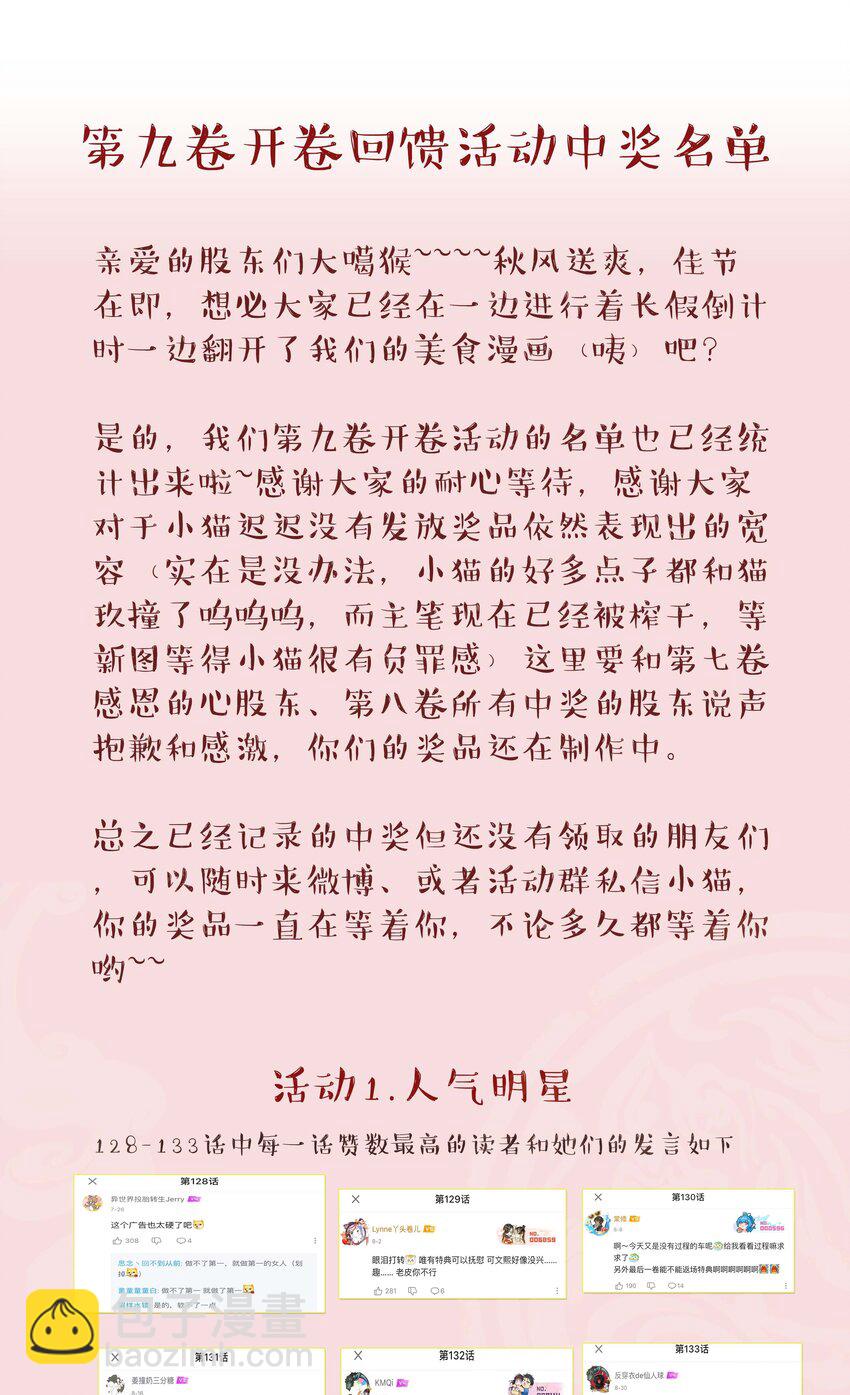 第九卷开卷回馈活动中奖名单
亲爱的股东们大噶猴~~~~秋风送爽，佳节
在即，想必大家已经在一边进行着长假倒计
时一边翻开了我们的美食漫画（咦）吧？
是的，我们第九卷开卷活动的名单也已经统
计出来啦~感谢大家的耐心等待，感谢大家
对于小猫迟迟没有发放奖品依然表现出的宽
容（实在是没办法，小猫的好多点子都和猫
玖撞了呜呜呜，而主笔现在已经被榨干，等
新图等得小猫很有负罪感）这里要和第七卷
感恩的心股东、第八卷所有中奖的股东说声
抱歉和感激，你们的奖品还在制作中。
总之已经记录的中奖但还没有领取的朋友们
，可以随时来微博、或者活动群私信小猫，
你的奖品一直在等着你，不论多久都等着你
哟~~
活动1.人气明星
128-133话中每一话赞数最高的读者和她们的发言如下
第128话
异世界投胎转生Jerry
7-26
这个广告也太硬了吧
308
4
思念丶回不到从前: 做不了第一，就做第一的女人（划
掉
做不了第一 就做了第一
是的，软不了一点
第129话
Lynne丫头卷儿
8-2
NO.
006059
眼泪打转 唯有特典可以抚慰 可文熙好像没兴……
趣…… 老皮你不行
281
6
第130话
8-8
NO.
000596
啊～今天又是没有过程的车呢 给我看看过程嘛求
求了
另外最后一卷能不能返场特典啊啊啊啊啊啊
190
14
第131话
姜撞奶三分糖
8-16
第132话
KMQi
NO.
第133话
反穿衣de仙人球
8-30
包子漫畫
baozimh.com